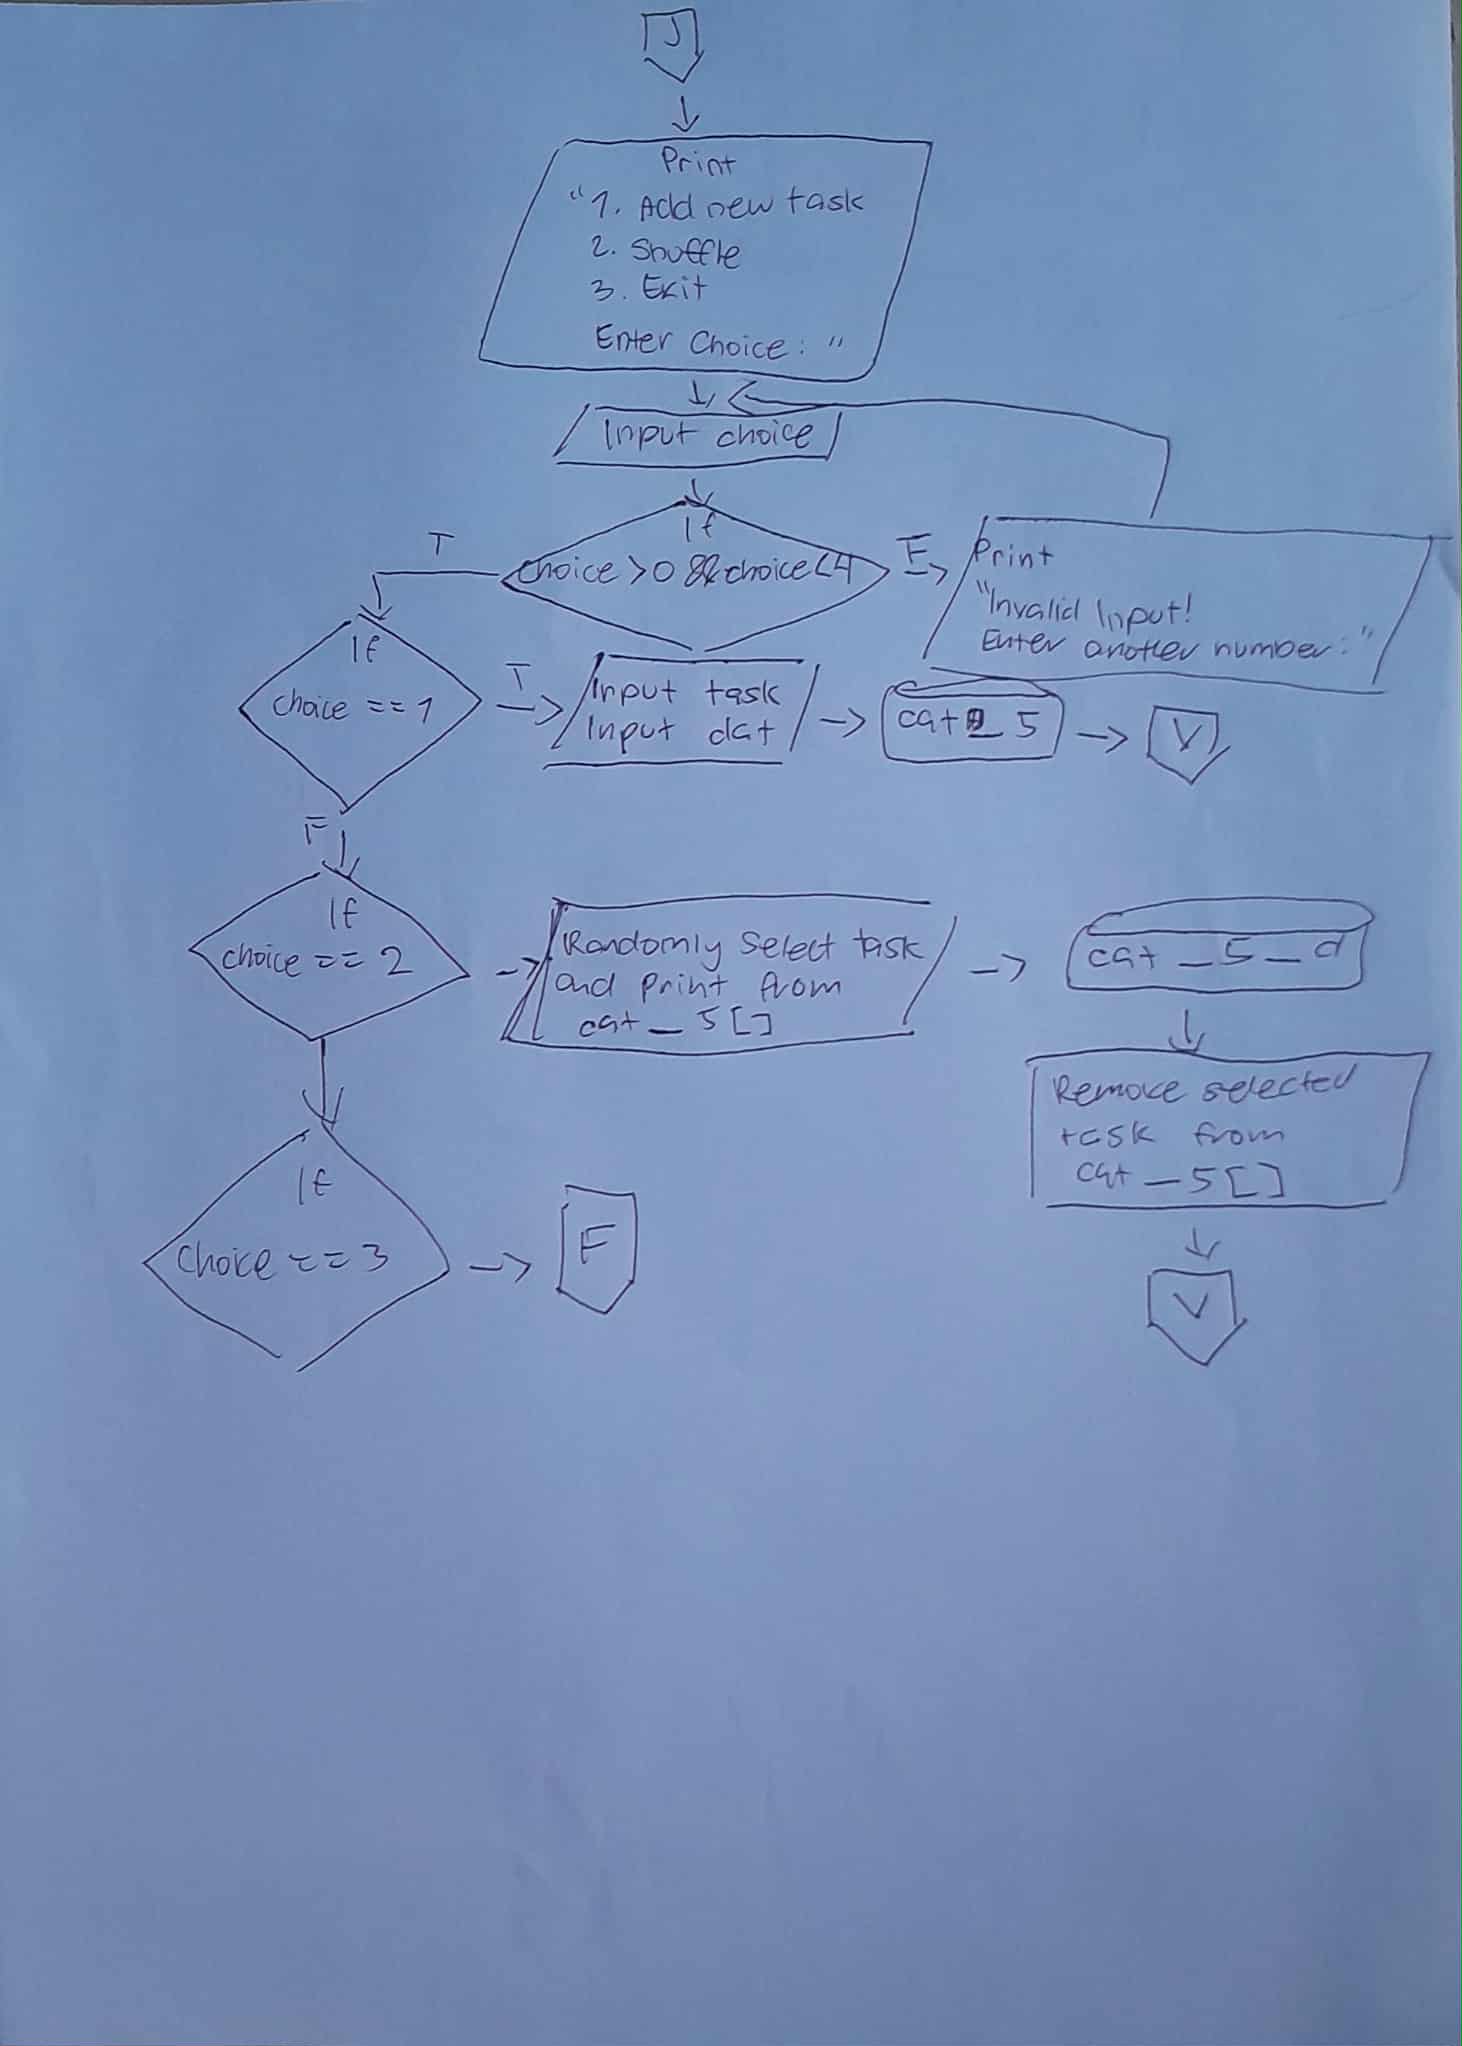 J
Print
"1. Add new task
2. Shuffle
3. Exit
Enter Choice: "
Input choice
If
choice >0 && choice <4
T
F
Print
"Invalid Input!
Enter another number: "
If
choice == 1
T
Input task
Input dat
cat_5
V
F
If
choice == 2
Randomly select task
and print from
cat_5[]
cat_5_d
Remove selected
task from
cat_5[]
V
If
choice == 3
F